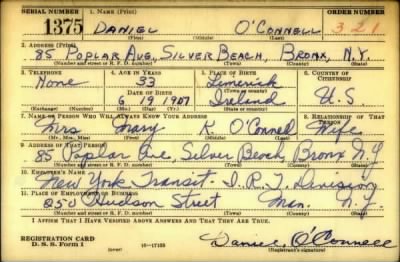 SERIAL NUMBER 1. NAME (Print) ORDER NUMBER
1375 DANIEL O'CONNELL 321
(First) (Middle) (Last)
2. ADDRESS (Print)
85 POPLAR AVE, SILVER BEACH, BRONX, N.Y.
(Number and street or R. F. D. number) (Town) (County) (State)
3. TELEPHONE 4. AGE IN YEARS 5. PLACE OF BIRTH 6. COUNTRY OF CITIZENSHIP
None 33 Limerick
DATE OF BIRTH (Town or county)
6 19 1907 Ireland U.S.
(Exchange) (Number) (Mo.) (Day) (Yr.) (State or country)
7. NAME OF PERSON WHO WILL ALWAYS KNOW YOUR ADDRESS 8. RELATIONSHIP OF THAT PERSON
Mrs Mary K O'Connell Wife
(Mr., Mrs., Miss) (First) (Middle) (Last)
9. ADDRESS OF THAT PERSON
85 Poplar Ave, Silver Beach Bronx N.Y.
(Number and street or R. F. D. number) (Town) (County) (State)
10. EMPLOYER'S NAME
New York Transit I.R.T. Division
11. PLACE OF EMPLOYMENT OR BUSINESS
250 Hudson Street Man. N.Y.
(Number and street or R. F. D. number) (Town) (County) (State)
I AFFIRM THAT I HAVE VERIFIED ABOVE ANSWERS AND THAT THEY ARE TRUE.
REGISTRATION CARD
D. S. S. Form 1 16-17105 Daniel O'Connell
(Registrant's signature)